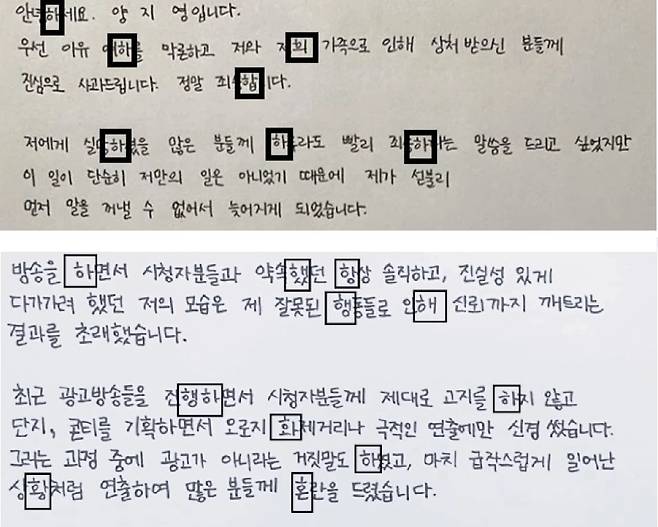 안녕하세요. 양지영입니다.
우선 이유 여하를 막론하고 저와 저희 가족으로 인해 상처 받으신 분들께
진심으로 사과드립니다. 정말 죄송합니다.
저에게 실망하셨을 많은 분들께 하루라도 빨리 죄송하다는 말씀을 드리고 싶었지만
이 일이 단순히 저만의 일은 아니었기 때문에 제가 섣불리
먼저 말을 꺼낼 수 없어서 늦어지게 되었습니다.
방송을 하면서 시청자분들과 약속했던 항상 솔직하고, 진실성 있게
다가가려 했던 저의 모습은 제 잘못된 행동들로 인해 신뢰까지 깨트리는
결과를 초래했습니다.
최근 광고방송들을 진행하면서 시청자분들께 제대로 고지를 하지 않고
단지, 콘티를 기획하면서 오로지 화제거리나 극적인 연출에만 신경 썼습니다.
그러는 과정 중에 광고가 아니라는 거짓말도 하였고, 마치 급작스럽게 일어난
상황처럼 연출하여 많은 분들께 혼란을 드렸습니다.